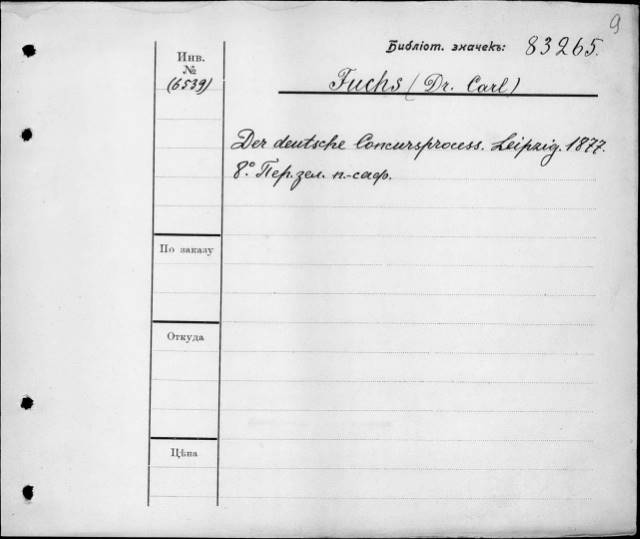 9
Библіот. значекъ: 83265.
Инв.
№
(6539)
Fuchs (Dr. Carl)
Der deutsche Concursprocess. Leipzig. 1877.
8.° Пер. зел. п.-саф.
По заказу
Откуда
Цѣна